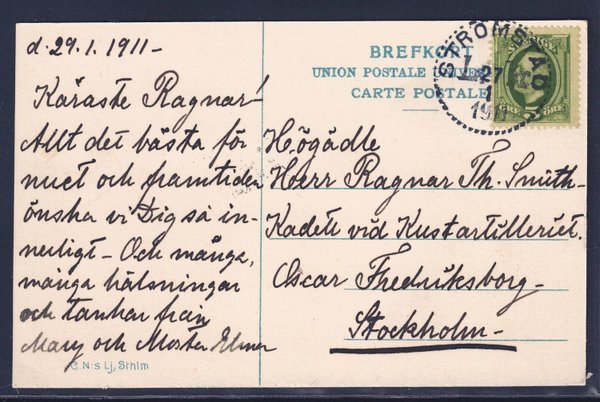 d. 29.1.1911-
Käraste Ragnar!
Allt det bästa för
nuet och framtiden
önska vi Dig så in-
nerligt- Och många,
många hälsningar
och tankar från
Mary och Moster Elmer
C.N:s Lj, Sthlm
BREFKORT
UNION POSTALE UNIVERS
CARTE POSTALE
STRÖMSTAD
27
1
191
SVERIGE
5
ÖRE
Högädle
Herr Ragnar Th. Smith-
Kadett vid Kustartilleriet.
Oscar Fredriksborg-
Stockholm-